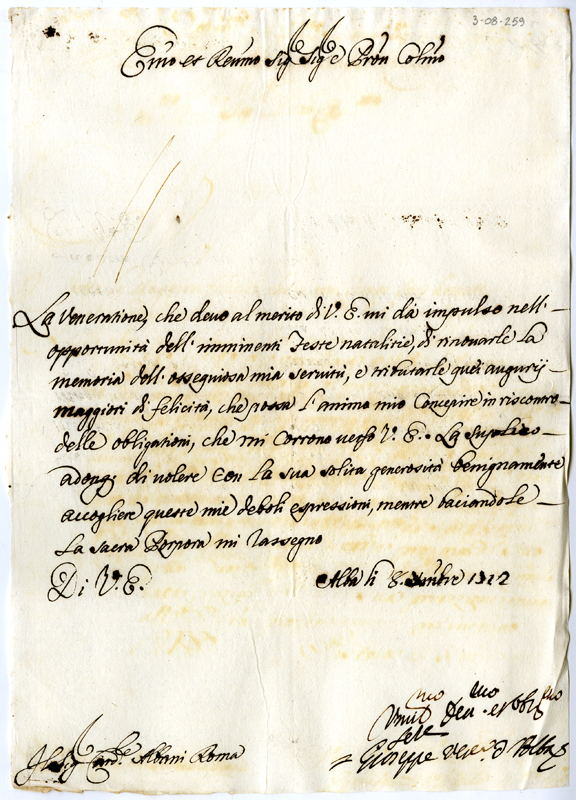 3-08-259
Emo et Reumo Sigr Sigr e Pron Colmo
La Veneratione, che devo al merito di V. E. mi dà impulso nell'
opportunità dell' imminenti Feste natalitie, di rinouarle la
memoria dell' ossequiosa mia seruitù, e tributarle quei augurij
maggiori di felicità, che possa l'animo mio Concepire in riscontro
delle obligationi, che mi Corrono verso V. E. La suplico
adonq; di volere Con la sua solita generosità benignamente
accogliere queste mie deboli espressioni, mentre baciandole
La sacra Porpora mi rassegno
Di V. E.
Alba li 8. Xmbre 1712
Umilmo Deumo et Obligmo
Sere
Giuseppe Vesco d'Alba
Sig Card. Albani Roma